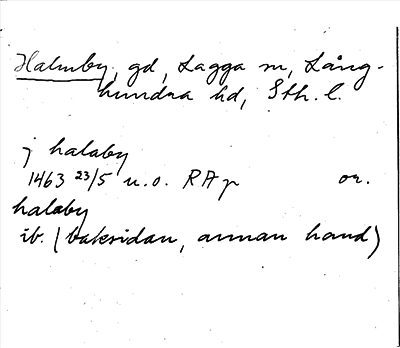 Halmby, gd, Lagga sn, Lång-
hundra hd, Sth. l.
j halaby
1463 23/5 u.o. RAp or.
halaby
ib. (baksidan, annan hand)